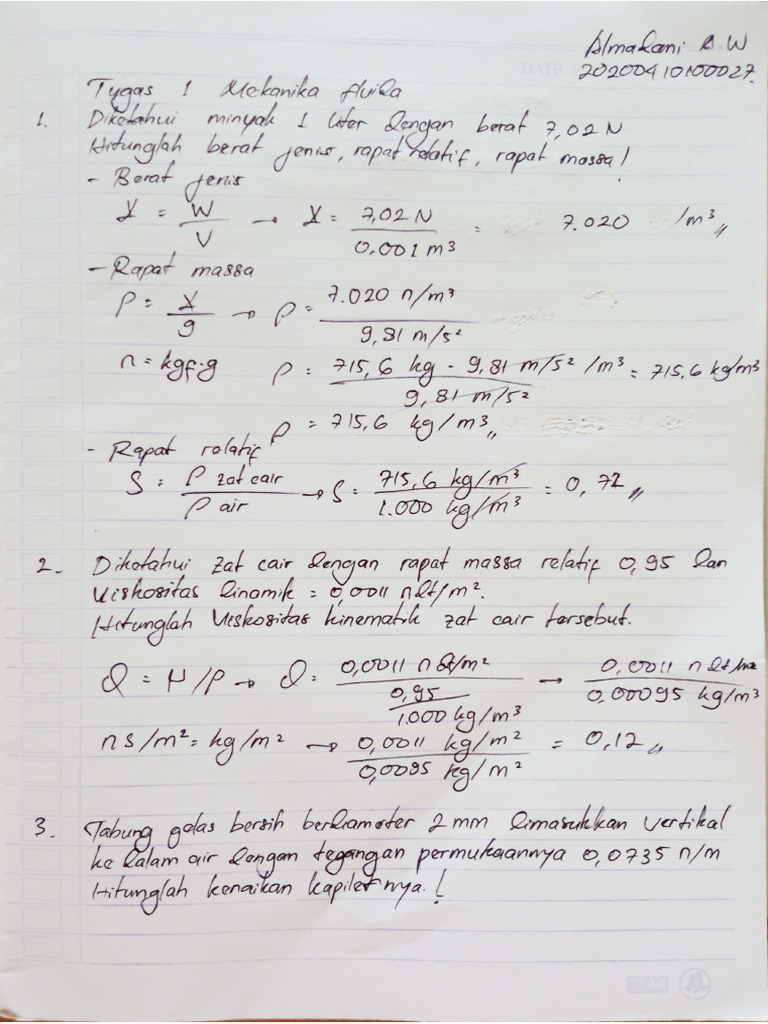 Almadani A.W
DATE
20200410100027.
Tugas 1 Mekanika fluida
1. Diketahui minyak 1 liter dengan berat 7,02 N
Hitunglah berat jenis, rapat relatif, rapat massa!
- Berat jenis
γ = W/V → γ = 7,02 N / 0,001 m³ = 7.020 /m³,,
- Rapat massa
ρ = γ/g → ρ = 7.020 n/m³ / 9,81 m/s²
n = kgf.g ρ = 715,6 kg - 9,81 m/s² /m³ / 9,81 m/s² = 715,6 kg/m³
ρ = 715,6 kg/m³,,
- Rapat relatif
S = ρ zat cair / ρ air → S = 715,6 kg/m³ / 1.000 kg/m³ = 0,72,,
2. Diketahui zat cair dengan rapat massa relatif 0,95 dan
Viskositas dinamik = 0,0011 ndt/m².
Hitunglah Viskositas kinematik zat cair tersebut.
υ = μ/ρ → υ = 0,0011 n dt/m² / 0,95 / 1.000 kg/m³ → 0,0011 n dt/m² / 0,00095 kg/m³
ns/m² = kg/m² → 0,0011 kg/m² / 0,0095 kg/m² = 0,12,,
3. Tabung gelas bersih berdiameter 2 mm dimasukkan vertikal
ke dalam air dengan tegangan permukaannya 0,0735 n/m
Hitunglah kenaikan kapilernya.!
MAXI